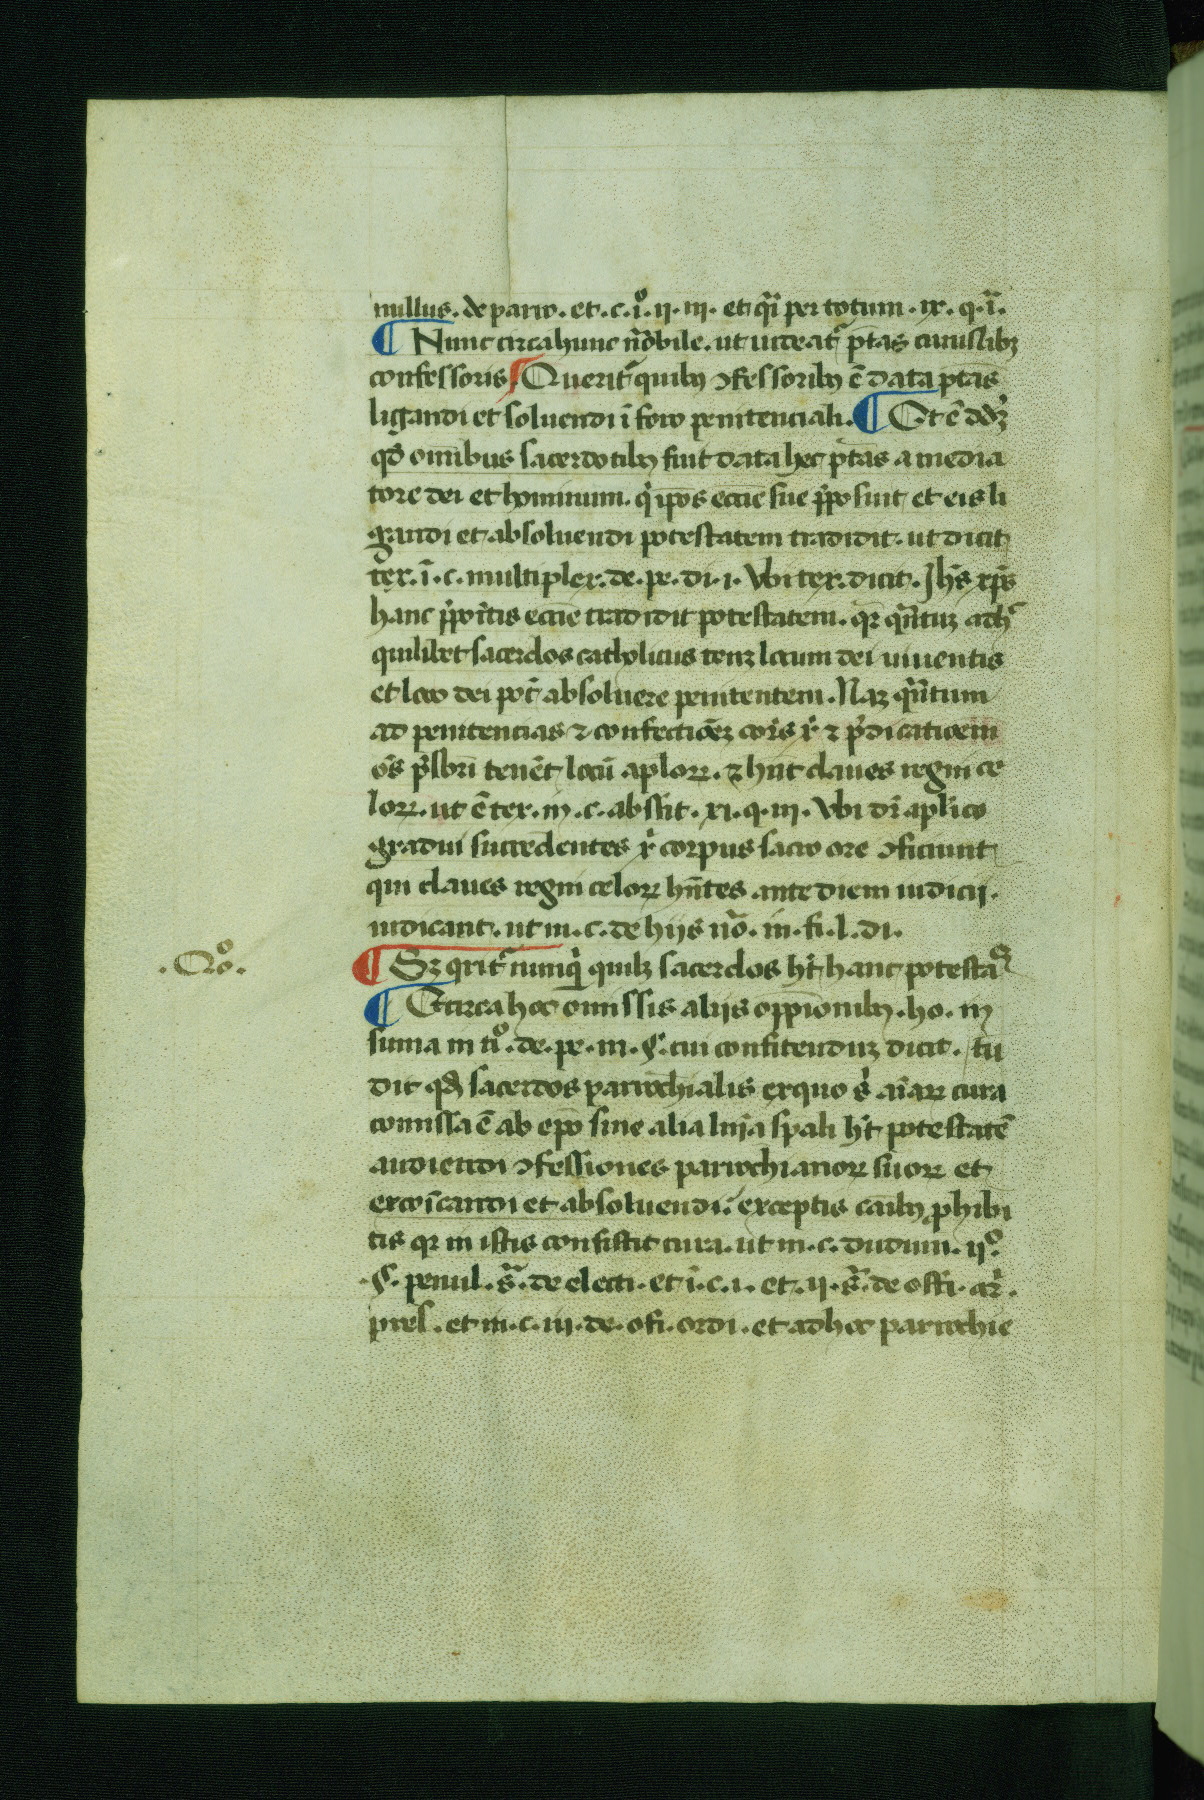 nullus. de paro. et. c. i.º ii. iii. et q̄i per totum. ix. q. ı̄.
¶ Nunc circa hunc nōbile. ut uideat᷑ p̄tas cuiuslibꝫ
confessoris ¶ Querit᷑ quibꝰ ↄfessoribꝰ ē data p̄tas
ligandi et soluendi ī foro penitenciali. ¶ Et ē dd'ꝫ
qđ omībus sacerdotibꝰ fuit data hec p̄tas a media
tore dei et hominum. q' ip̄os ecc̄ie sue p̄posuit et eis li
gandi et absoluendi potestatem tradidit. ut dicit
tex. ī. c. multiplex. de. pe. di. i. Vbi tex. dicit. Jhs̄ xp̄s
hanc p̄po'itis ecc̄ie tradidit potestatem. qꝛ q̄ntuꝫ adh'
quilibet sacerdos catholicus tenꝫ locum dei uiuentis
et loco dei pot̄ absoluere penitentem. Naꝫ q̄ntum
ad penitencias ⁊ confectōeꝫ cor̄is x' ⁊ p̄dicatiōem
om̄s p̄sbri tenēt locū ap̄lorꝝ. ⁊ hn̄t claues regni ce
lorꝝ. ut ē tex. in. c. absit. xi. q. iii. Vbi dr̄ ap̄lico
gradui succedentes x' corpus sacro ore ↄficiunt
qui claues regni celorꝝ hn̄tes ante diem iudicij.
iudicant. ut in. c. de hijs uº. in. fi. l. di.
.Qº.
¶ Sꝫ qrit᷑ nunq̇ quilꝫ sacerdos hꝫ hanc potestaᷓ
¶ Circa hoc omissis alijs oppīonibꝰ. ho. in
suma in ti.º de. pe. in. §. cui confitenduꝫ dicit. tū
dit qđ sacerdos parrochialis ex quo s' aīarꝝ cura
comissa ē ab ep̄o sine alia lnīa sp̄ali hꝫ potestatē
audiendi ↄfessiones parrochianorꝝ suorꝝ et
excoīcandi et absoluendi. exceptis casibꝰ phibi
tis qꝛ in istis consistit cura. ut in. c. dudum. ii.º
.§. penul. s̄. de electi. et ī. c. i. et. ii. s̄. de offi. ar̄.
presƀ. et in. c. iii. de. ofi. ordi. et ad hoc parrochie